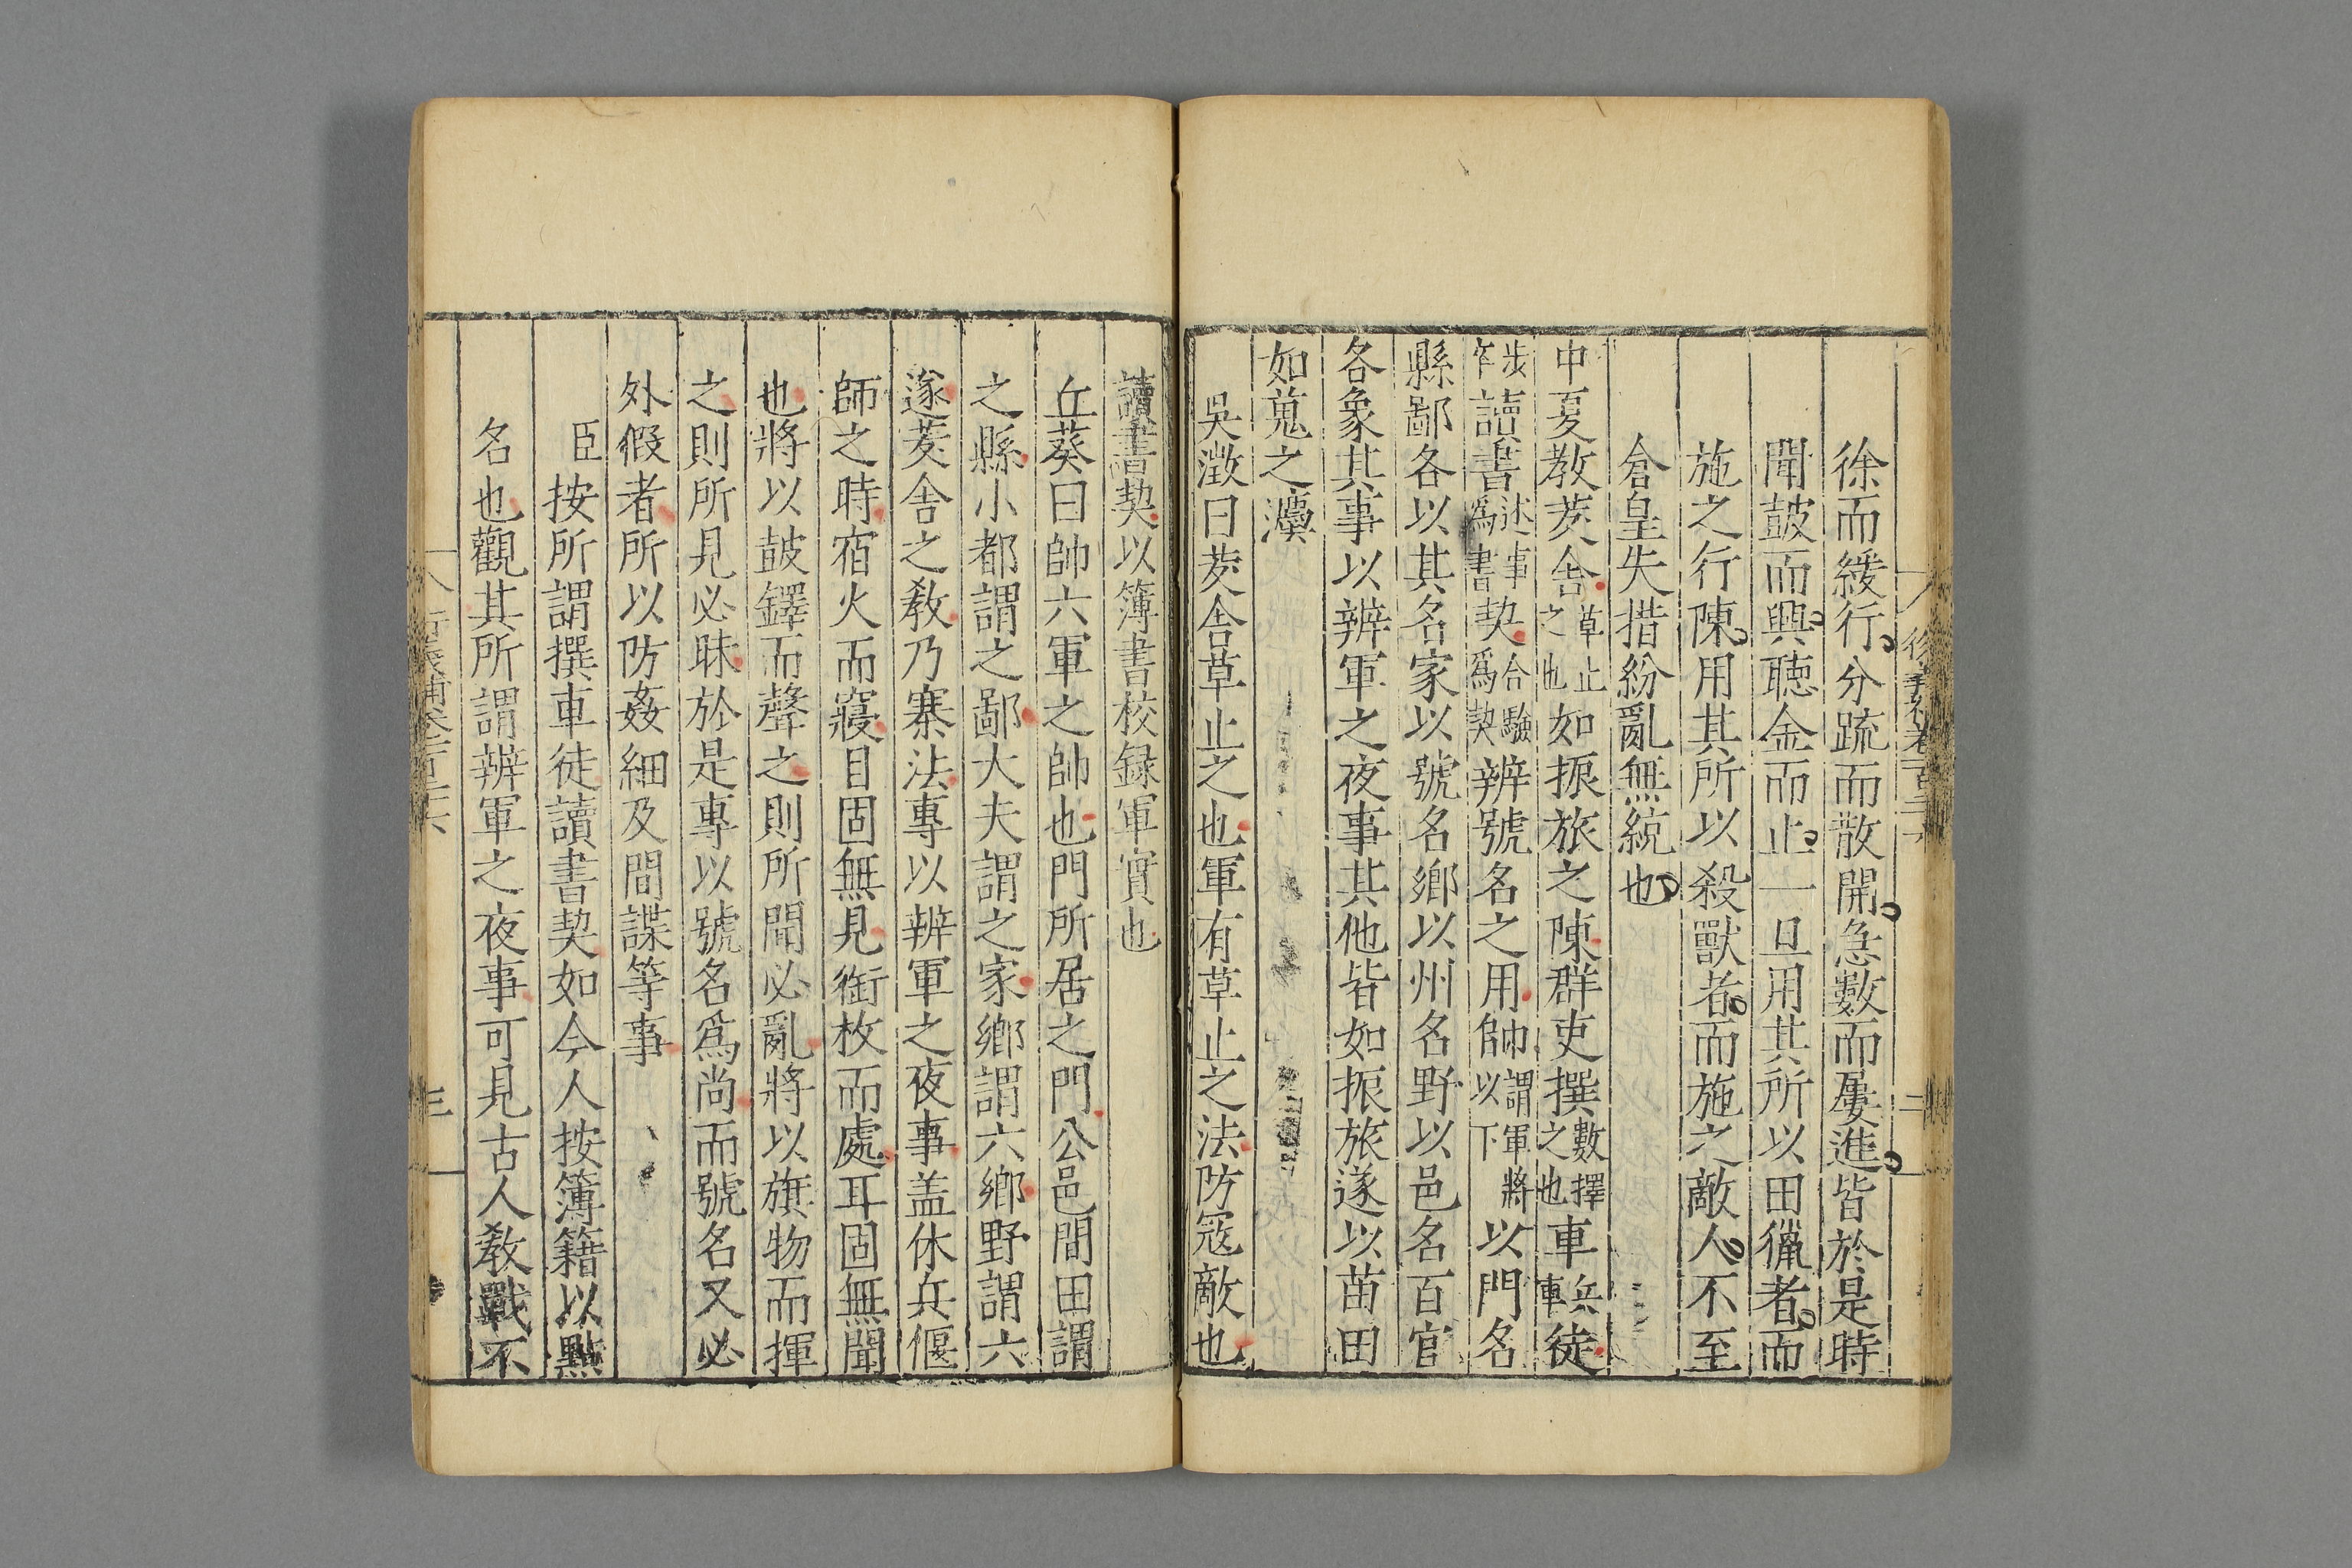 徐而緩行分疏而散開急數而屢進皆於是時
聞鼓而興聽金而止一旦用其所以田獵者而
施之行陳用其所以殺獸者而施之敵人不至
倉皇失措紛亂無統也
中夏教茇舍草止之也如振旅之陳群吏撰數擇之也車兵車徒
步卒讀書述事爲書契合驗爲契辨號名之用帥謂軍將以下以門名
縣鄙各以其名家以號名鄉以州名野以邑名百官
各象其事以辨軍之夜事其他皆如振旅遂以苗田
如蒐之灋
吳澂曰茇舍草止之也軍有草止之法防寇敵也
讀書契以簿書校録軍實也
丘葵曰帥六軍之帥也門所居之門公邑間田謂
之縣小都謂之鄙大夫謂之家鄉謂六鄉野謂六
遂茇舍之教乃寨法專以辨軍之夜事盖休兵偃
師之時宿火而寢目固無見銜枚而處耳固無聞
也將以鼓鐸而聲之則所聞必亂將以旗物而揮
之則所見必昧於是專以號名爲尚而號名又必
外假者所以防姦細及間諜等事
臣按所謂撰車徒讀書契如今人按簿籍以點
名也觀其所謂辨軍之夜事可見古人教戰不
三